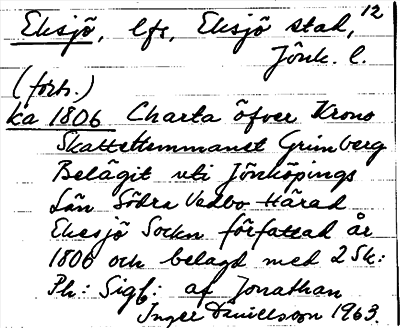 12
Eksjö, lfs, Eksjö stad,
Jönk. l.
(forts.)
ka 1806 Charta öfver Krono
Skattehemmanet Grimberg
Belägit uti Jönköpings
Län Södra Vedbo Härad
Eksjö Sockn författad år
1806 och belagd med 2 Sk:
Ph: Sigl: af Jonathan
Inger Danielsson 1963.